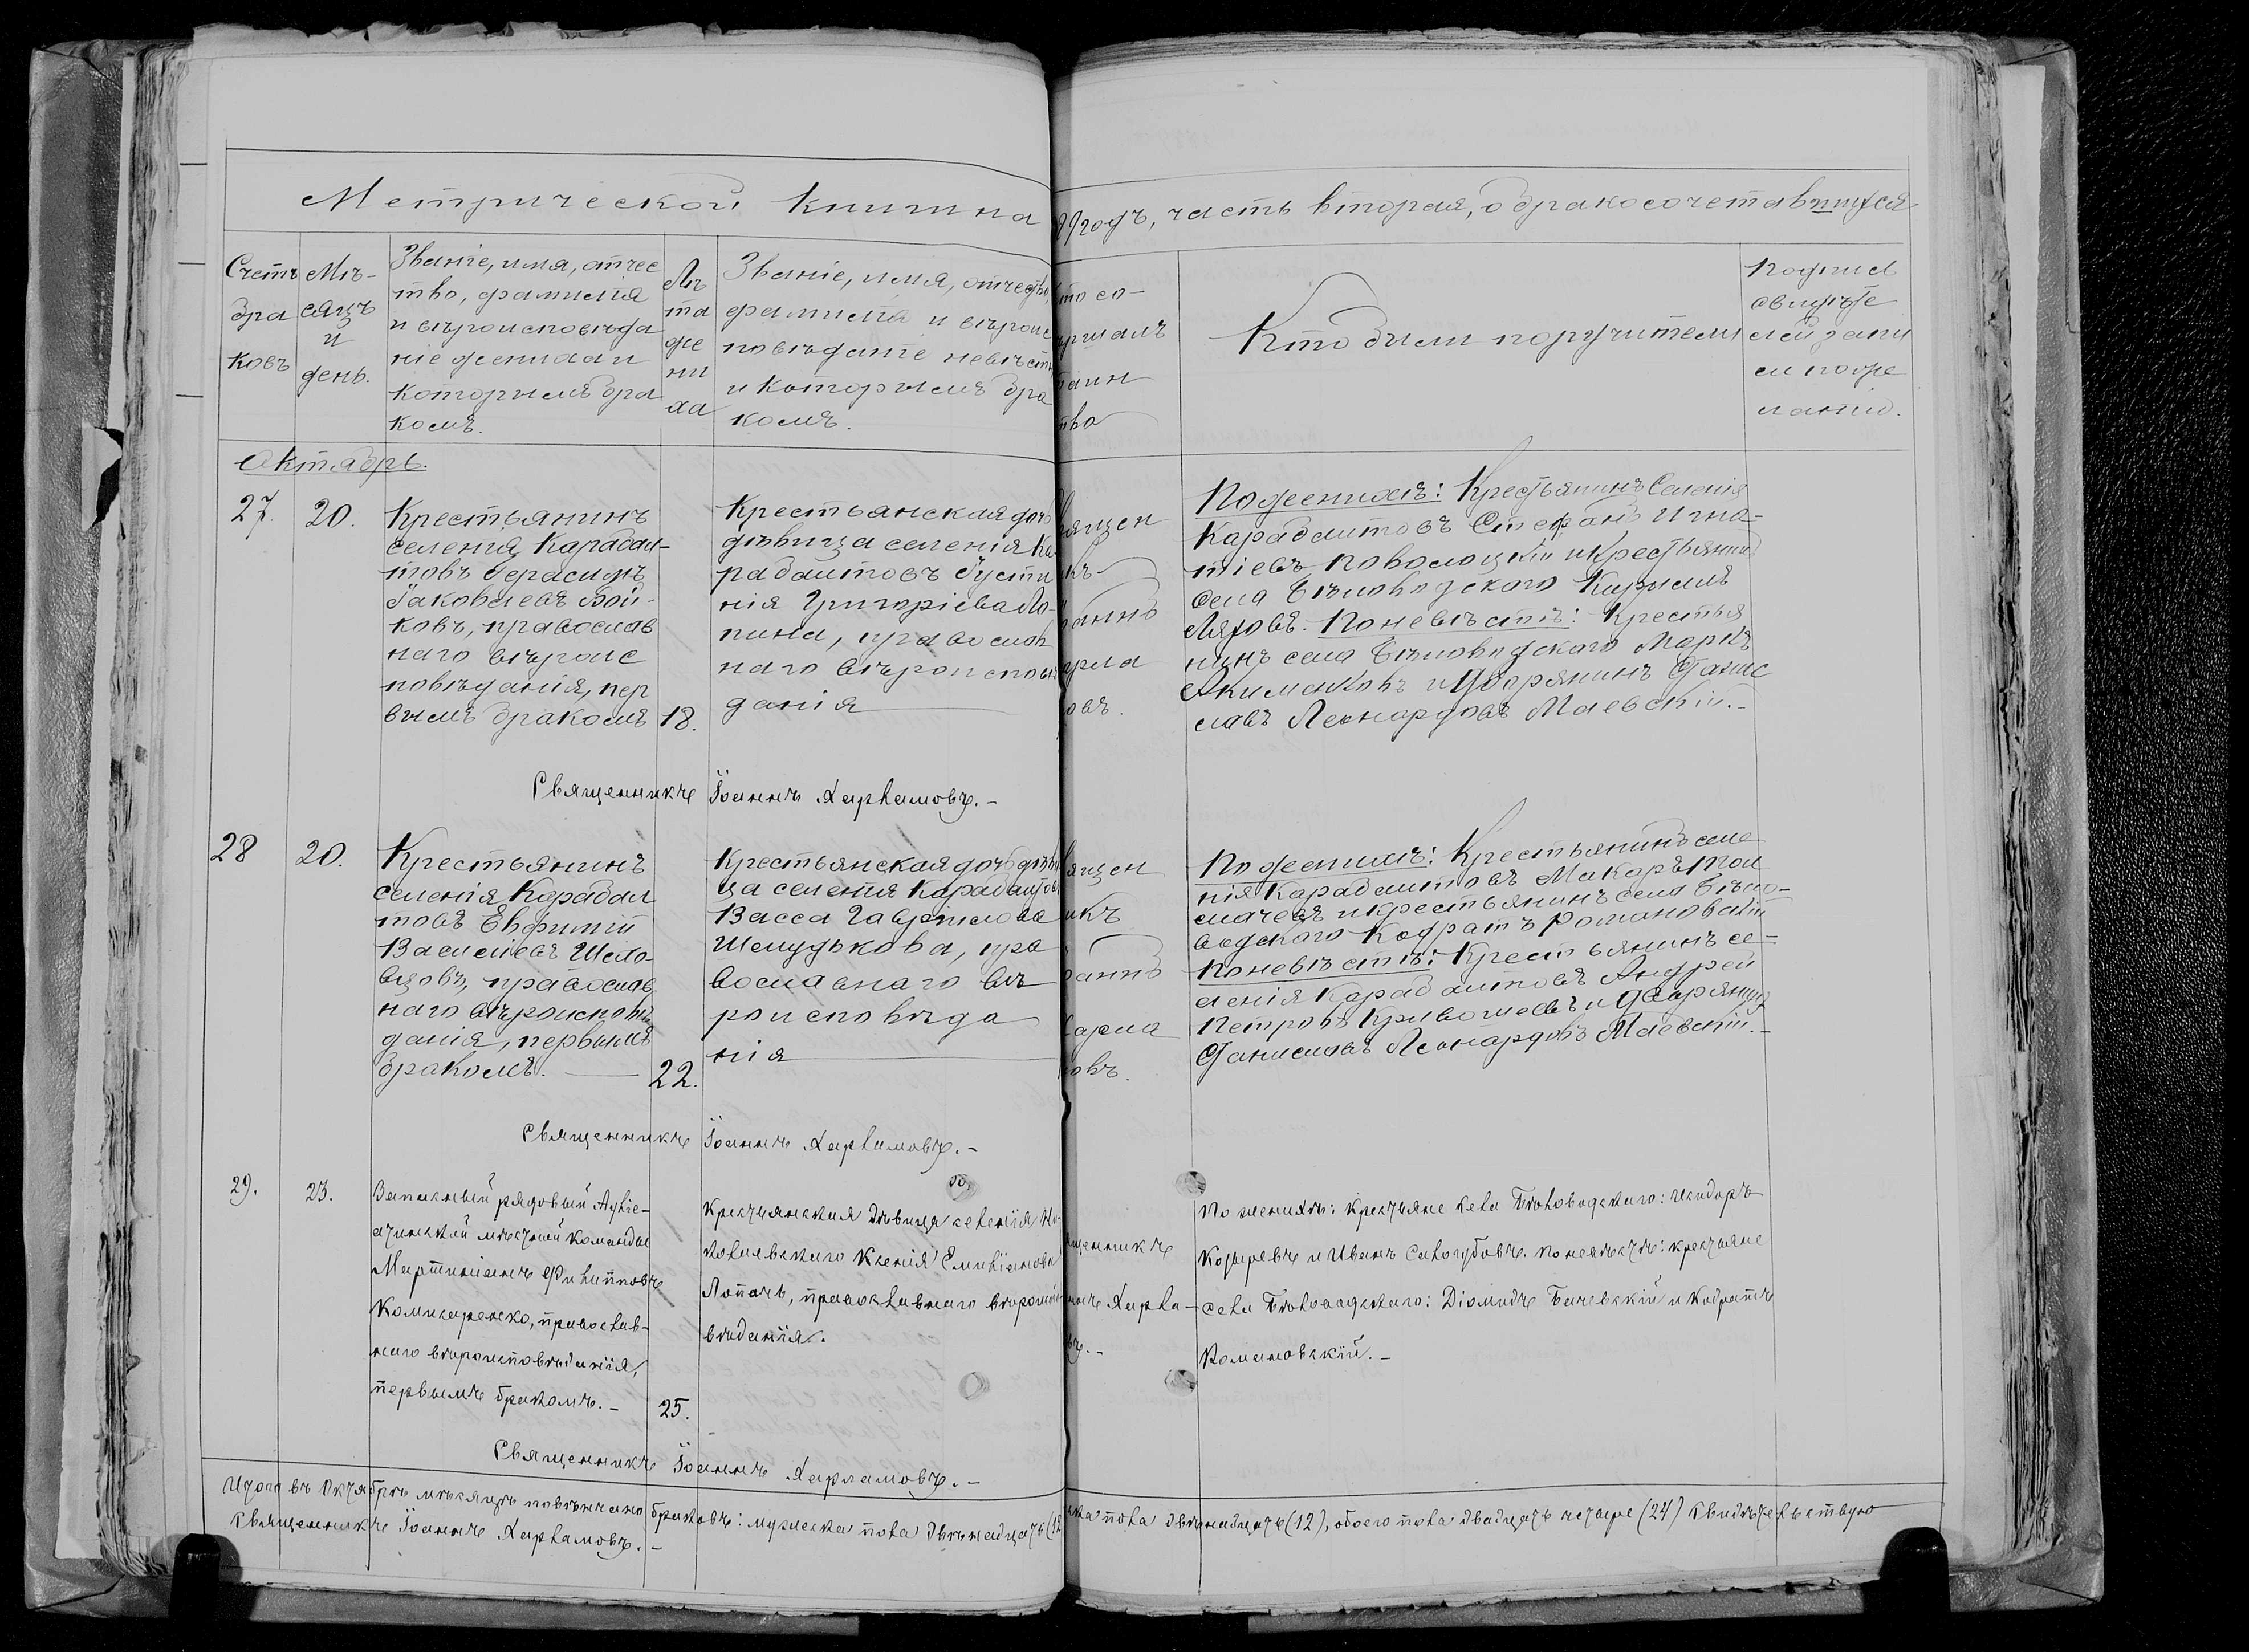 Метрической книги на
9 годъ, часть вторая, о бракосочетавшихся
Счетъ
бра
ковъ
Мѣ-
сяцъ
и
день.
Званіе, имя, отчес
тво, фамилія
и вѣроисповѣда
ніе жениха и
которымъ бра
комъ.
Лѣ
та
же
ни
ха
Званіе, имя, отчество,
фамилія и вѣроис
повѣданіе невѣсты
и которымъ бра
комъ.
то со-
вершалъ
таин
тва
Кто были поручители
Подпись
свидѣте
лей запи
си по же
ланію.
Октябрь.
27.
20.
Крестьянинъ
селенія Карабал-
товъ Герасимъ
Іаковлевъ Бой-
ковъ, православ
наго вѣроис
повѣданія, пер
вымъ бракомъ
18.
Крестьянская дочь
дѣвица селенія Ка
рабалтовъ Іусти
нія Григоріева Ло-
пина, православ
наго вѣроисповѣ
данія
вящен
икъ
оаннъ
арла
овъ.
По женихѣ: Крестьянинъ Селенія
Карабалтовъ Стефанъ Игна-
тіевъ Поволоцкій и Крестьянинъ
села Бѣловодского Кириллъ
Ляховъ. По невѣстѣ: Крестья
нинъ села Бѣловодского Маркъ
Акименковъ и Дворянинъ Станис
лавъ Леонардовъ Маевскій.-
Священникъ Іоаннъ Харламовъ.-
28
20.
Крестьянинъ
селенія Карабал
товъ Евфимій
Василіевъ Шехо-
вцовъ, православ
наго вѣроисповѣ
данія, первымъ
бракомъ.
22.
Крестьянская дочь дѣви
ца селенія Карабалтовъ
Васса Гавріилова
Шелудькова, пра
вославнаго вѣ
роисповѣда
нія
вящен
икъ
оаннъ
Харла
овъ.
По женихѣ: Крестьянинъ селе
нія Карабалтовъ Макаръ Тол
мачевъ и крестьянинъ села Бѣло-
водского Кодратъ Романовскій
По невѣстѣ: Крестьянинъ се-
ленія Карабалтовъ Андрей
Петровъ Кривошеевъ и Дворянинъ
Станиславъ Леонардовъ Маевскій.-
Священникъ Іоаннъ Харламовъ.-
29.
23.
Запасный рядовый Ауліе-
атинской мѣстной команды
Мартиніанъ Филипповъ
Комисаренко, православ-
наго вѣроисповѣданія,
первымъ бракомъ.-
25.
Крестьянская дѣвица селенія Ни-
колаевскаго Ксенія Емиліанова
Лопачъ, православнаго вѣроиспо-
вѣданія.
ященникъ
ннъ Харла-
въ.-
По женихѣ: крестьяне села Бѣловодскаго: Исидоръ
Козыревъ и Иванъ Сологубовъ. По невѣстѣ: крестьяне
села Бѣловодскаго: Діомидъ Бачевскій и Кодратъ
Романовскій.-
Священникъ Іоаннъ Харламовъ.-
Итого въ Октябрѣ мѣсяцѣ повѣнчано браковъ: мужеска пола двѣнадцать (12
ска пола двѣнадцать (12), обоего пола двадцать четыре (24) Свидѣтельствую
Священникъ Іоаннъ Харламовъ.-